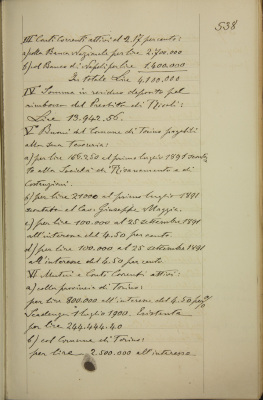 538
III Conti Correnti attivi al 2.17 per cento:
a) colla Banca Nazionale per lire 2.700.000
b) col Banco di Napoli per lire 1,400.000
In totale Lire 4,100,000
IV° Somma in residuo deposito pel
rimborso del Prestito di
Lire 13.942.56.
V° Buoni del Comune di Torino pagabili
alla sua Tesoreria:
a) per lire 166.250 al primo luglio 1891
to alla Società di Risanamento e di
Costruzioni.
b) per lire 21000 al primo luglio 1891
al Cav. Giuseppe Maggia.
c) per lire 100.000 al 25 settembre 1891
all'interesse del 4.50 per cento
d) per lire 100.000 al 25 settembre 1891
all'interesse del 4.50 per cento
VI Mutui e Conti Correnti attivi:
a) colla provincia di Torino:
per lire 800.000 all'interesse del 4.50 per %
Scadenza 1 luglio 1900. Esistenza
per lire 244.444.40
b) col Comune di Torino:
per lire 2.500.000 all'interesse